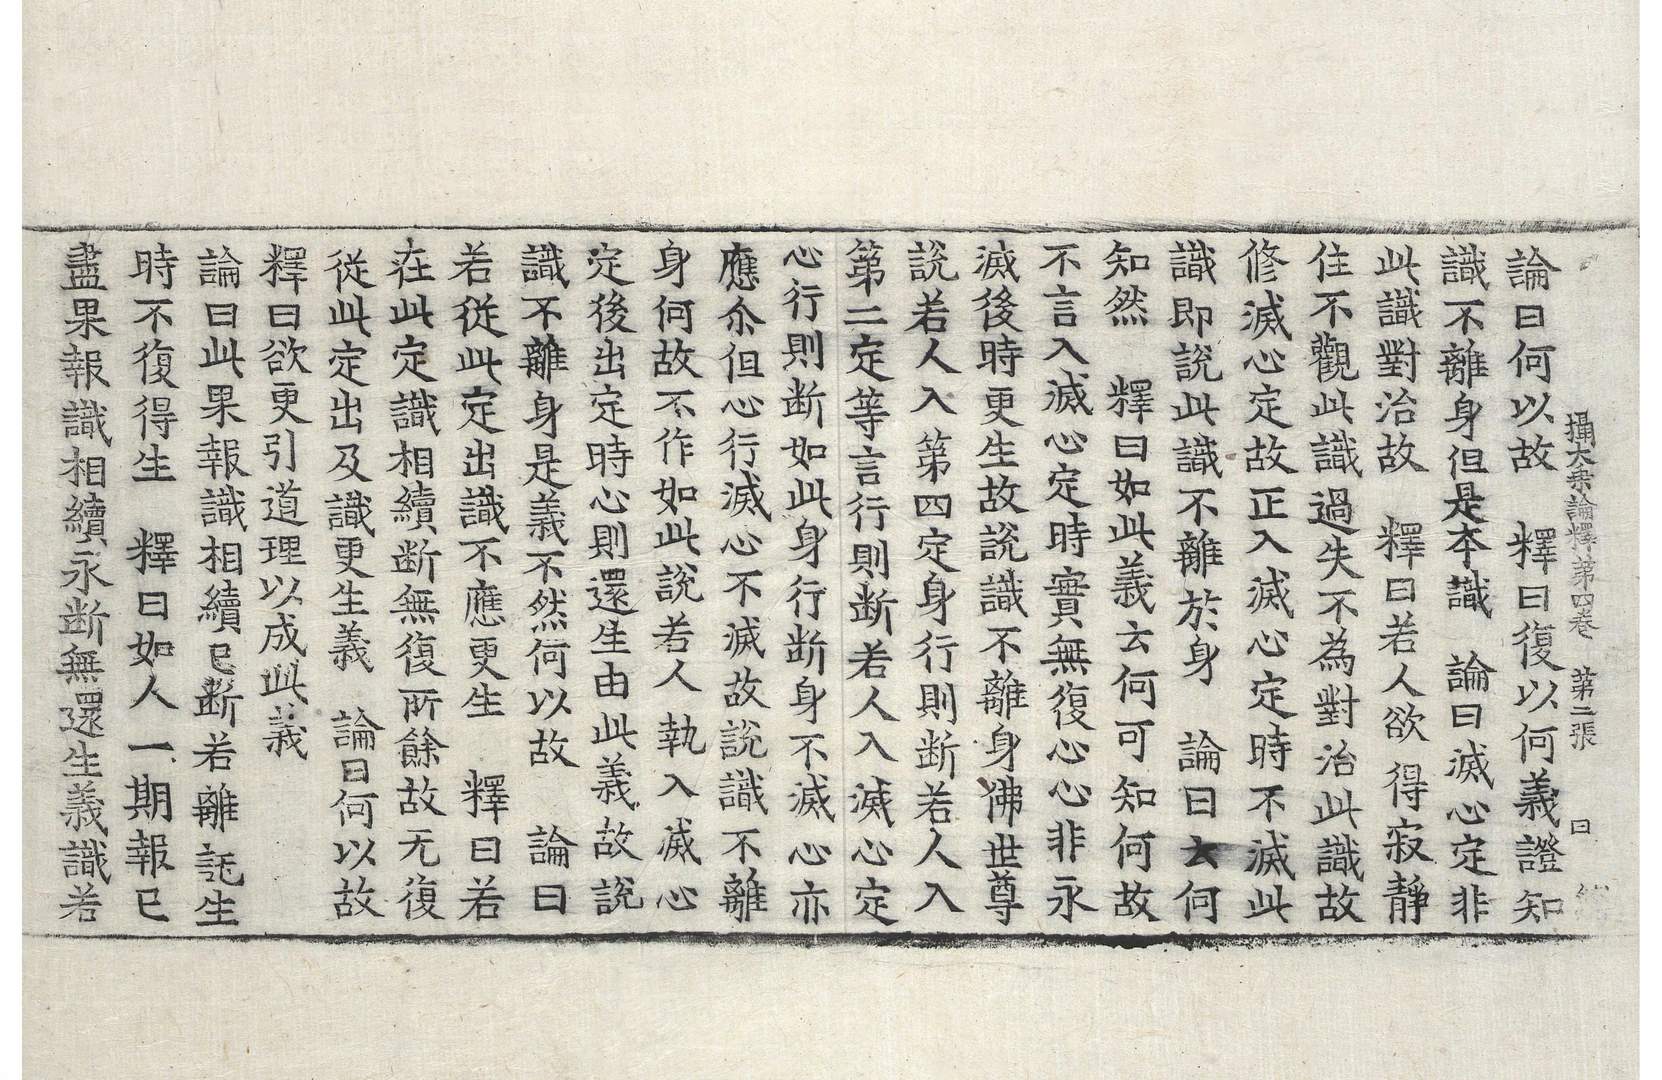 攝大乗論釋第四卷 第二張 曰
論曰何以故 釋曰復以何義證知
識不離身但是本識 論曰滅心定非
此識對治故 釋曰若人欲得寂靜
住不觀此識過失不為對治此識故
修滅心定故正入滅心定時不滅此
識即說此識不離於身 論曰云何
知然 釋曰如此義云何可知何故
不言入滅心定時實無復心心非永
滅後時更生故說識不離身佛世尊
說若人入第四定身行則断若人入
第二定等言行則断若人入滅心定
心行則断如此身行断身不滅心亦
應尒但心行滅心不滅故說識不離
身何故不作如此說若人執入滅心
定後出定時心則還生由此義故說
識不離身是義不然何以故 論曰
若從此定出識不應更生 釋曰若
在此定識相續断無復所餘故无復
從此定出及識更生義 論曰何以故
釋曰欲更引道理以成此義
論曰此果報識相續已断若離託生
時不復得生 釋曰如人一期報已
盡果報識相續永断無還生義識若